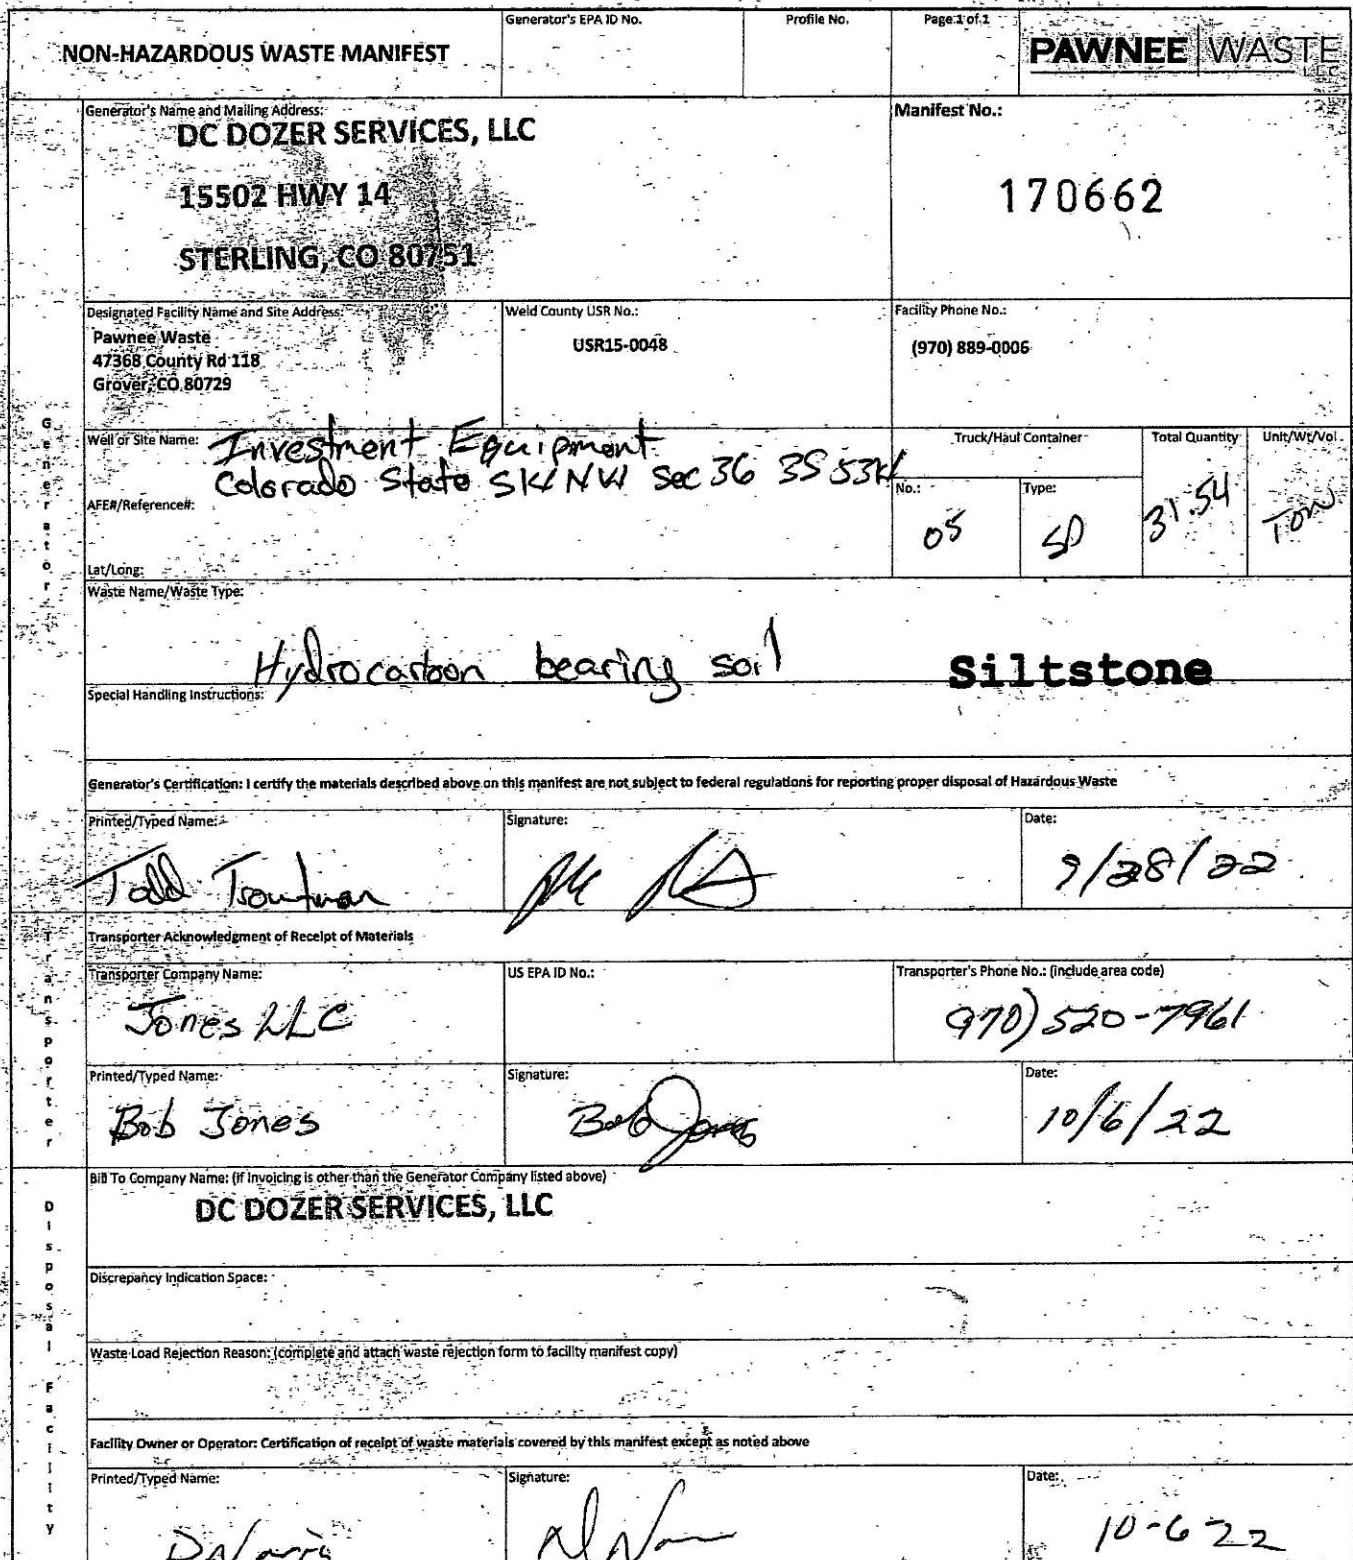 NON-HAZARDOUS WASTE MANIFEST
Generator's EPA ID No.
Profile No.
Page 1 of 1
PAWNEE WASTE LLC
Generator's Name and Mailing Address:
DC DOZER SERVICES, LLC
15502 HWY 14
STERLING, CO 80751
Manifest No.:
170662
Designated Facility Name and Site Address:
Pawnee Waste
47368 County Rd 118
Grover, CO 80729
Weld County USR No.:
USR15-0048
Facility Phone No.:
(970) 889-0006
Generator
Well or Site Name: Investment Equipment
Colorado State SWNW Sec 36 3S 53W
AFE#/Reference#:
Lat/Long:
Truck/Haul Container
No.:
05
Type:
SD
Total Quantity
31.54
Unit/Wt/Vol.
TON
Waste Name/Waste Type:
Hydrocarbon bearing soil
Siltstone
Special Handling Instructions:
Generator's Certification: I certify the materials described above on this manifest are not subject to federal regulations for reporting proper disposal of Hazardous Waste
Printed/Typed Name:
Todd Troutman
Signature:
Date:
9/28/22
Transporter
Transporter Acknowledgment of Receipt of Materials
Transporter Company Name:
Jones LLC
US EPA ID No.:
Transporter's Phone No.: (include area code)
970) 520-7961
Printed/Typed Name:
Bob Jones
Signature:
Bob Jones
Date:
10/6/22
Disposal Facility
Bill To Company Name: (if invoicing is other than the Generator Company listed above)
DC DOZER SERVICES, LLC
Discrepancy Indication Space:
Waste Load Rejection Reason: (complete and attach waste rejection form to facility manifest copy)
Facility Owner or Operator: Certification of receipt of waste materials covered by this manifest except as noted above
Printed/Typed Name:
Signature:
Date:
10-6-22